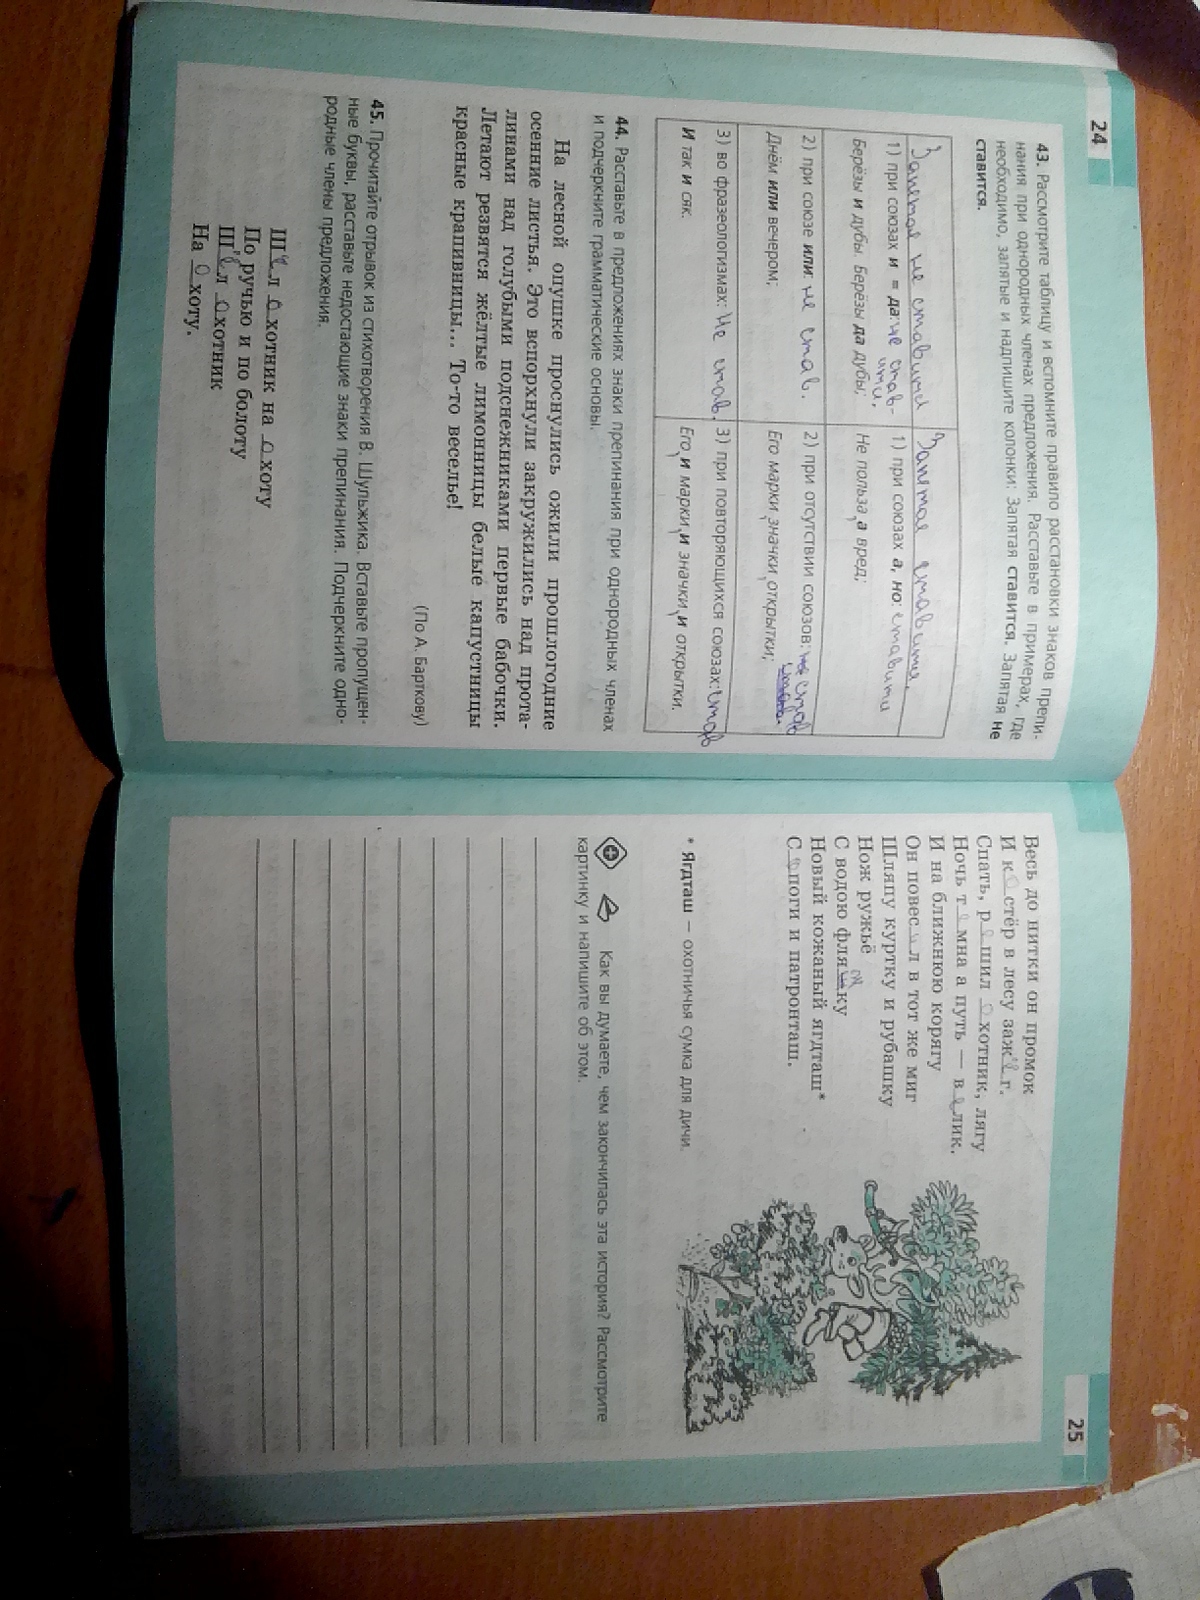 24
43. Рассмотрите таблицу и вспомните правило расстановки знаков препи-
нания при однородных членах предложения. Расставьте в примерах, где
необходимо, запятые и надпишите колонки: Запятая ставится. Запятая не
ставится.
Запятая не ставится
Запятая ставити,
1) при союзах и = да: не став-
ити,
Берёзы и дубы. Берёзы да дубы;
1) при союзах а, но: ставити
Не польза, а вред;
2) при союзе или: не став.
Днём или вечером;
2) при отсутствии союзов: не став
Его марки, значки, открытки;
3) во фразеологизмах: Не став.
И так и сяк.
3) при повторяющихся союзах: став
Его, и марки, и значки, и открытки.
44. Расставьте в предложениях знаки препинания при однородных членах
и подчеркните грамматические основы.
На лесной опушке проснулись ожили прошлогодние
осенние листья. Это вспорхнули закружились над прота-
линами над голубыми подснежниками первые бабочки.
Летают резвятся жёлтые лимонницы белые капустницы
красные крапивницы... То-то веселье!
(По А. Барткову)
45. Прочитайте отрывок из стихотворения В. Шульжика. Вставьте пропущен-
ные буквы, расставьте недостающие знаки препинания. Подчеркните одно-
родные члены предложения.
Шёл охотник на охоту
По ручью и по болоту
Шёл охотник
На охоту.
25
Весь до нитки он промок
И костёр в лесу зажёг.
Спать, решил охотник, лягу
Ночь темна а путь — велик.
И на ближнюю корягу
Он повесил в тот же миг
Шляпу куртку и рубашку
Нож ружьё
С водою фляжку
Новый кожаный ягдташ*
Сапоги и патронташ.
* Ягдташ — охотничья сумка для дичи.
Как вы думаете, чем закончилась эта история? Рассмотрите
картинку и напишите об этом.